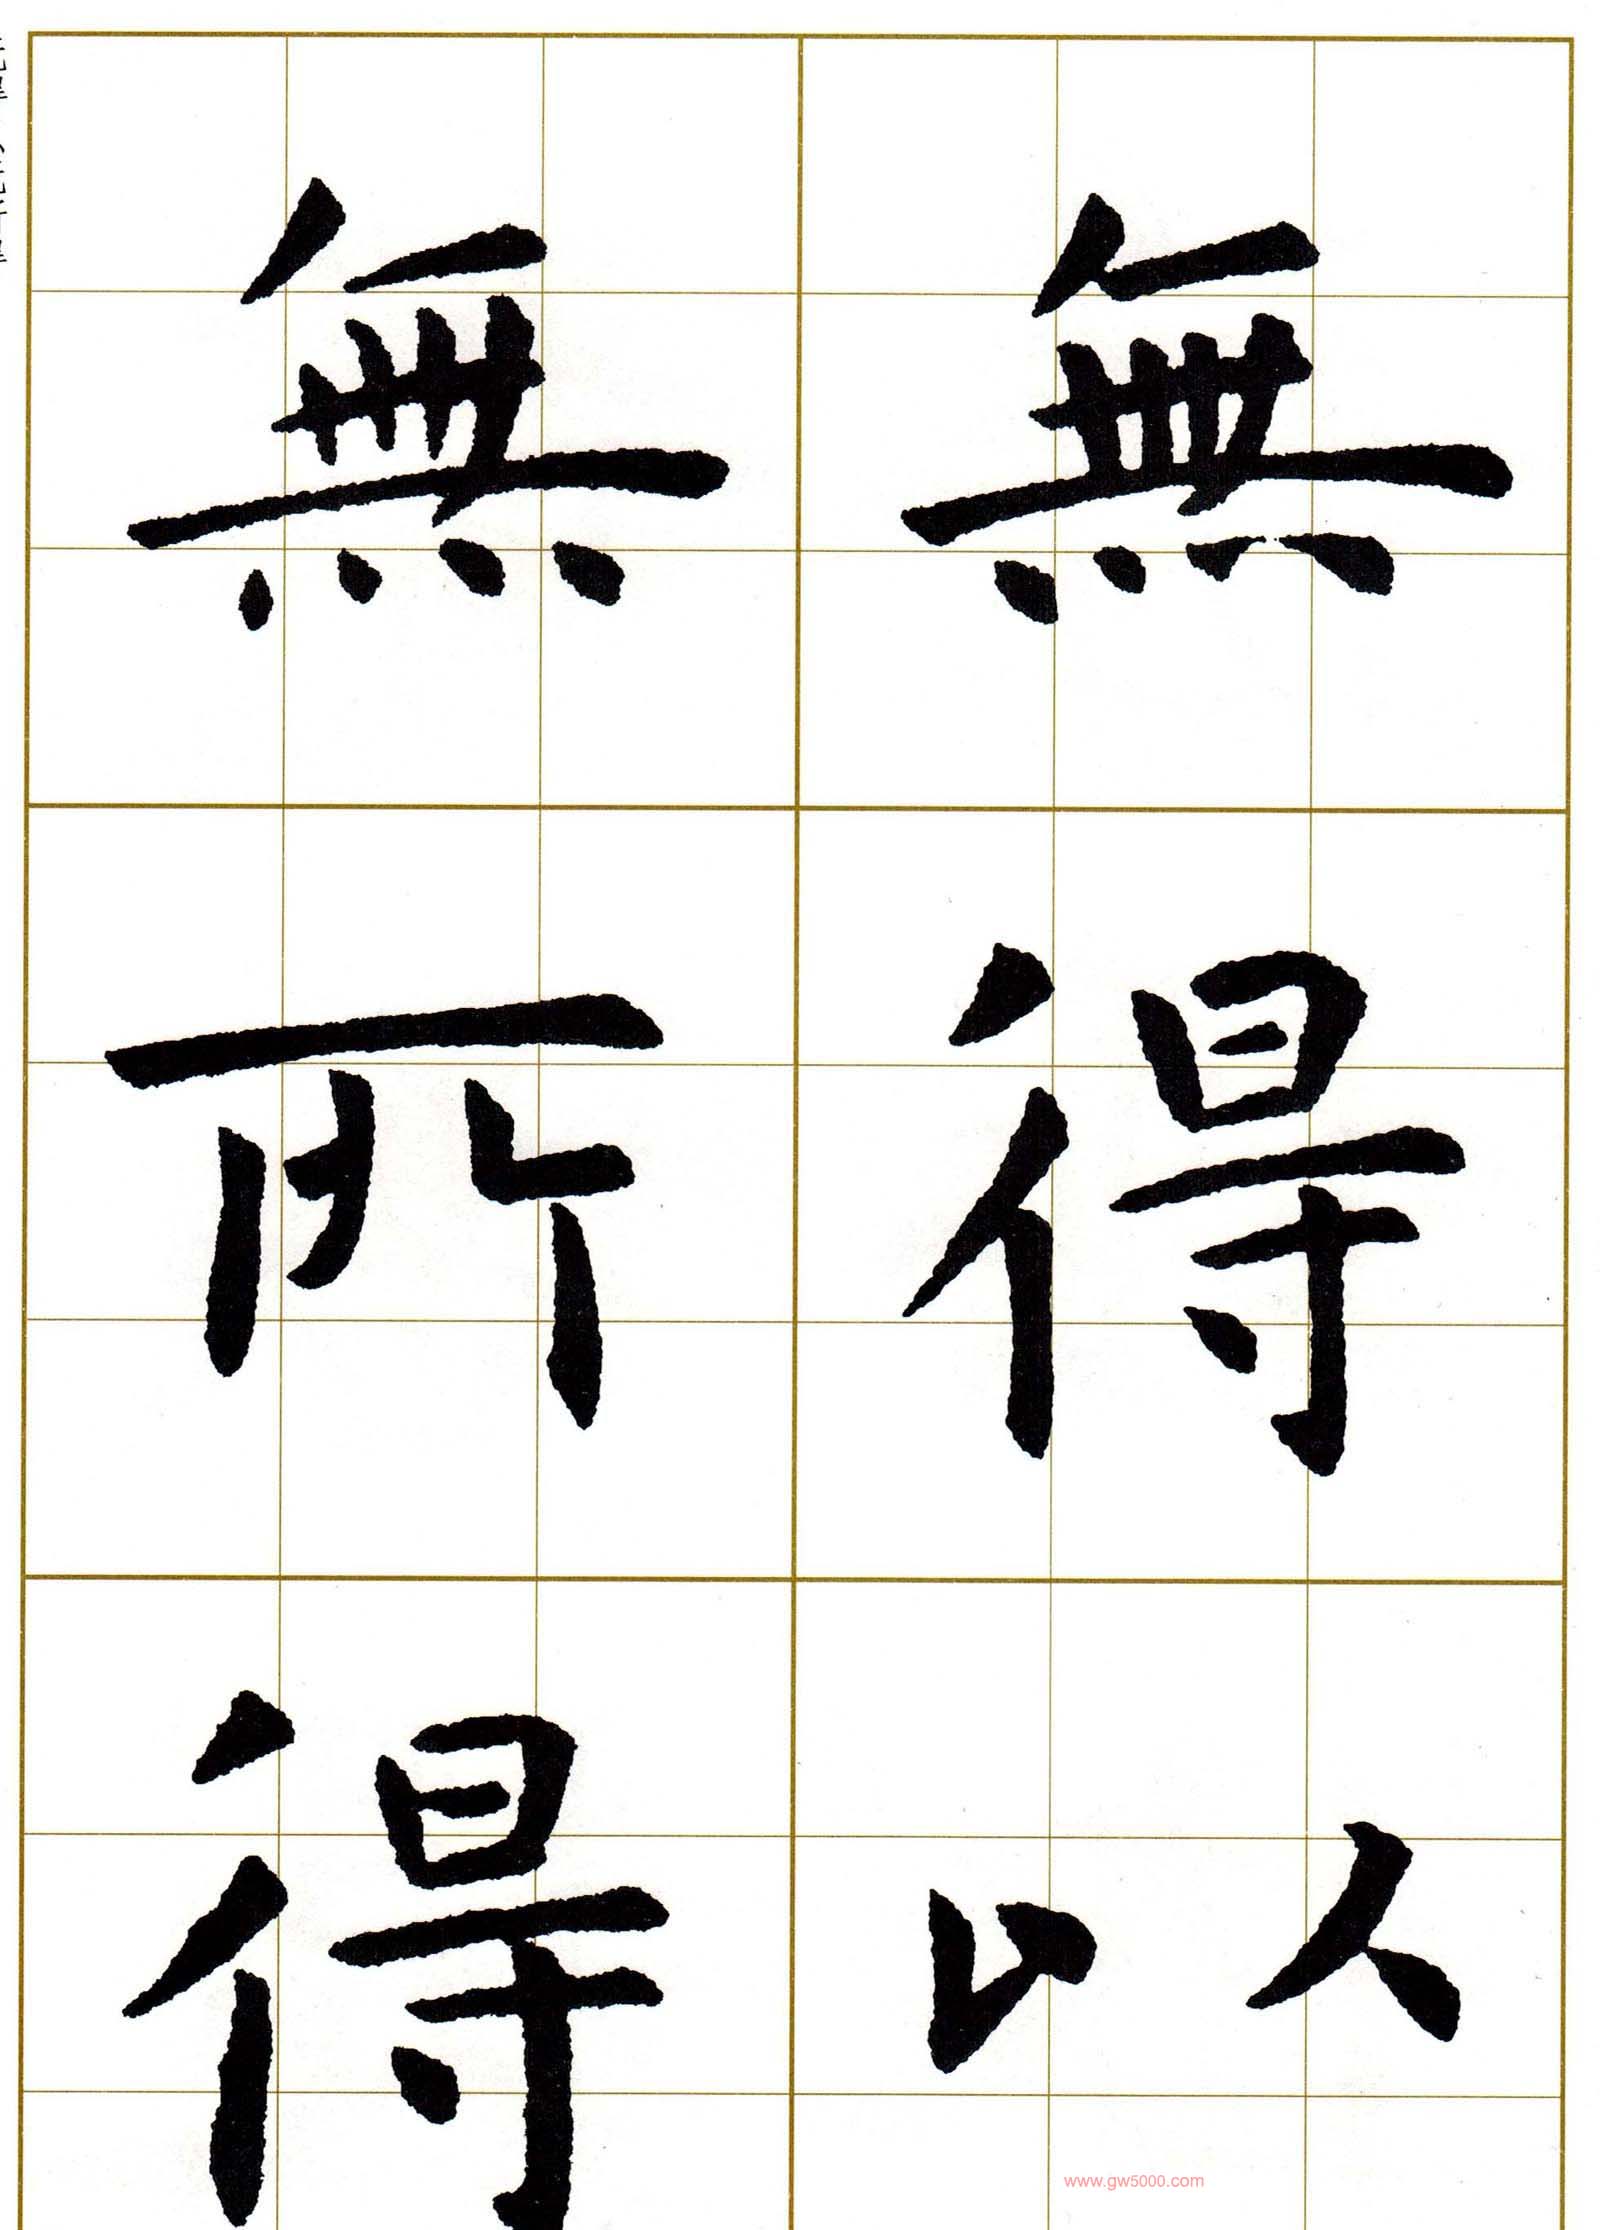 無得以
無所得
www.gw5000.com